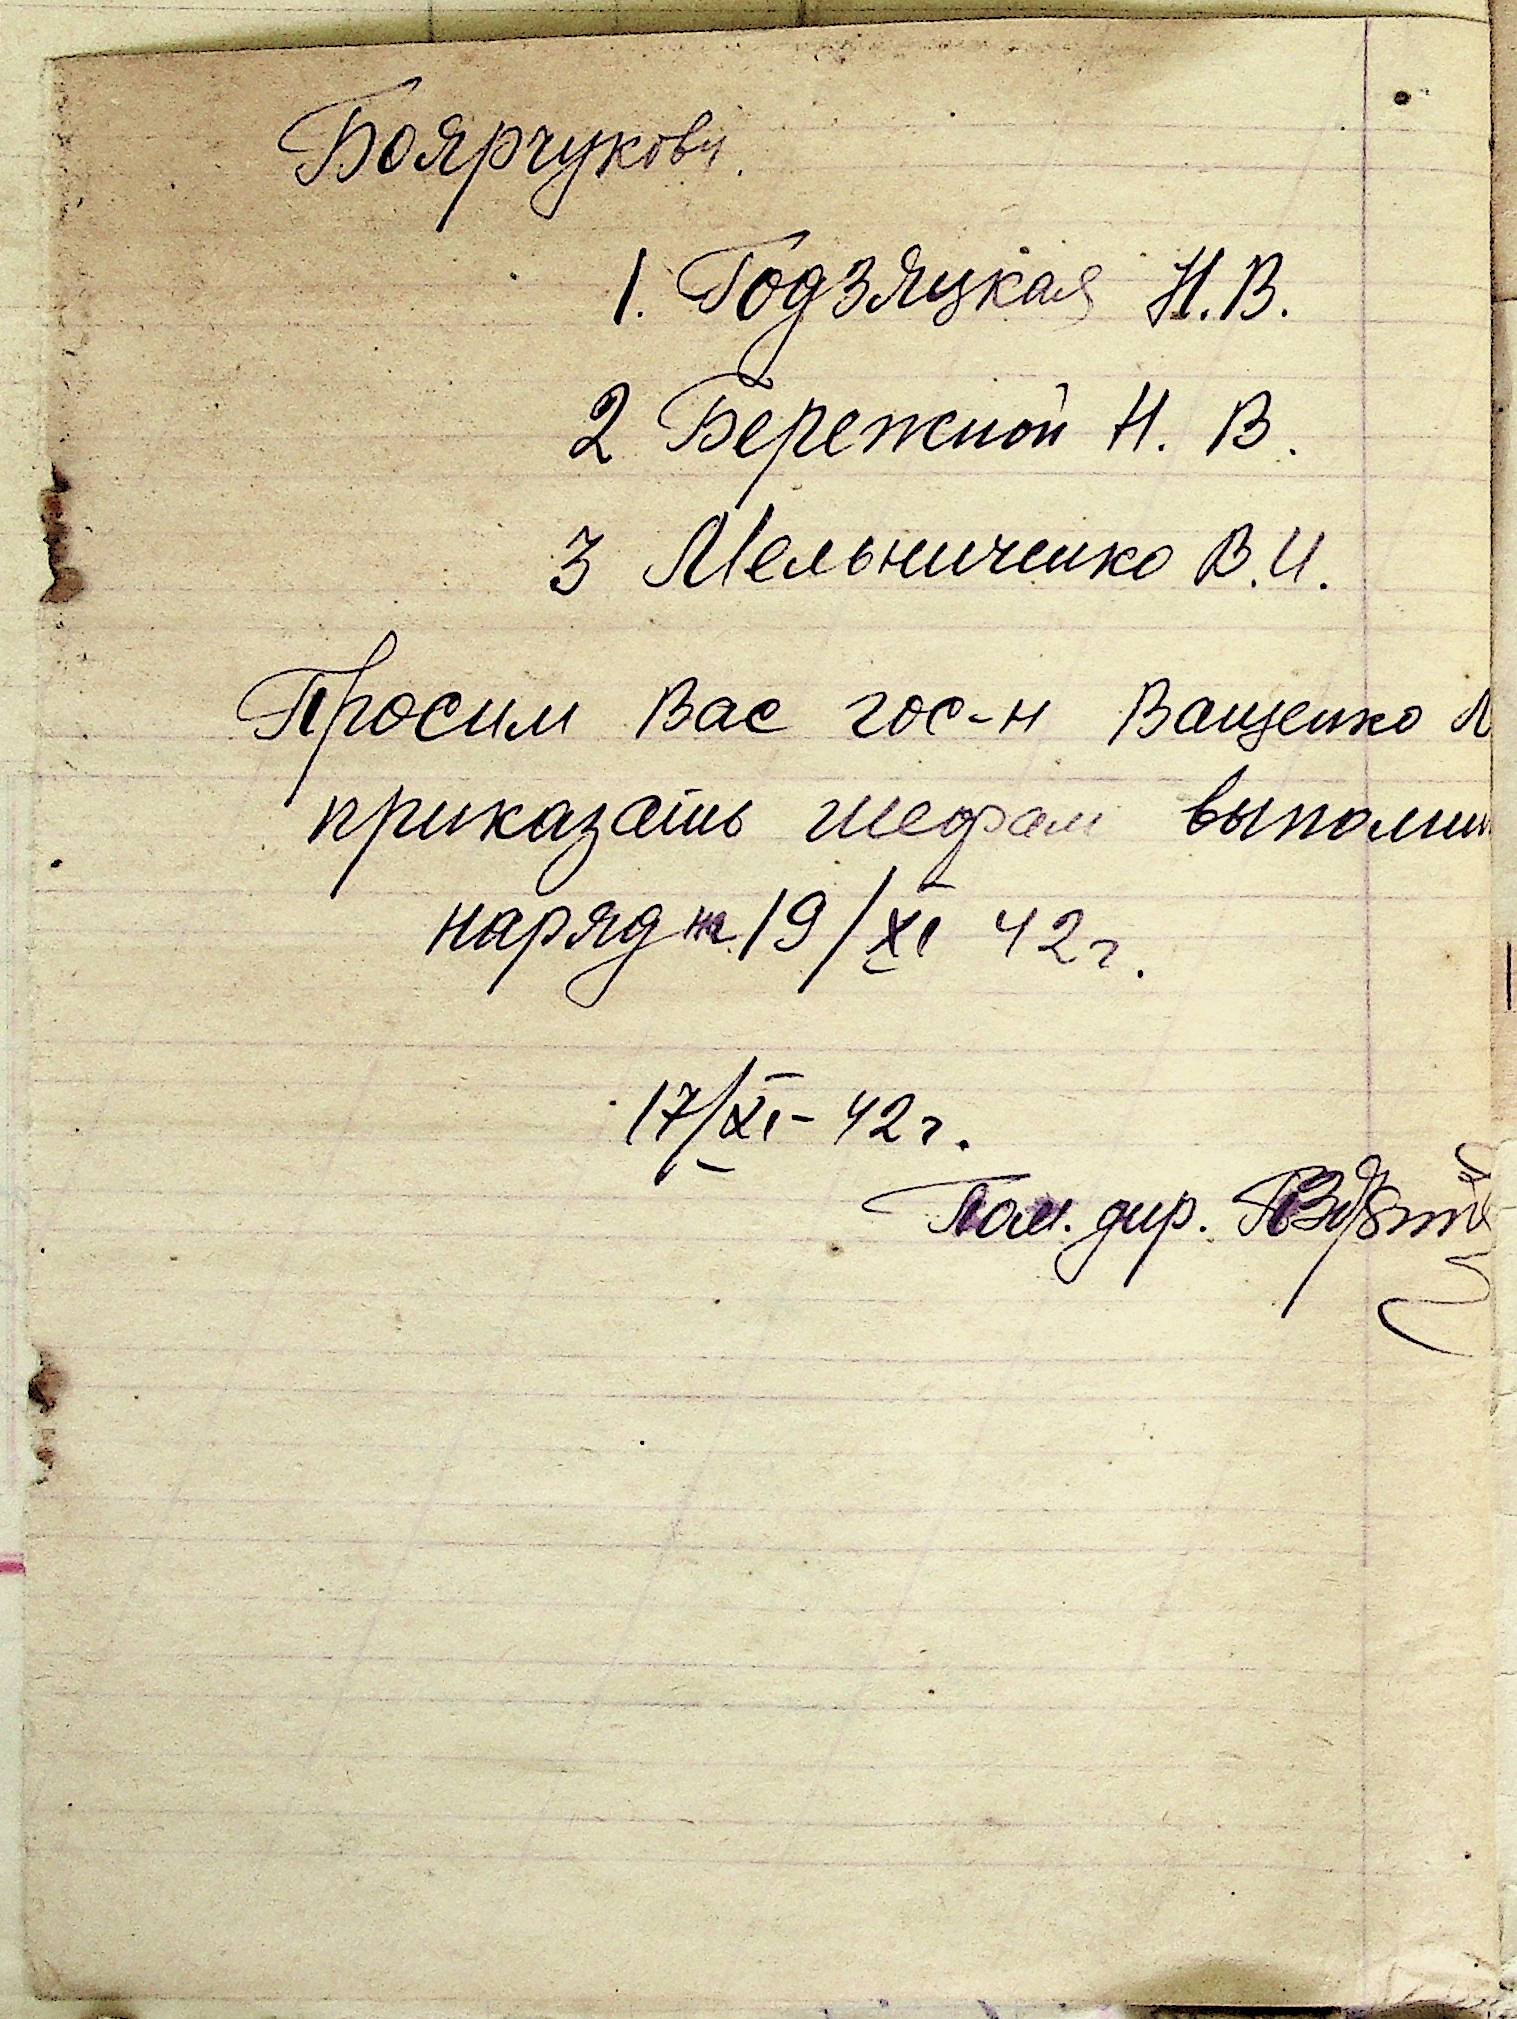 Боярчукови.
1. Годзяцкая Н.В.
2 Бережной Н. В.
3 Мельниченко В.И.
Просим Вас гос-н Ващенко
приказать шефам выполнит
наряд на 19/XI 42г.
17/XI- 42г.
Пом. дир.